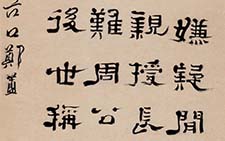 嫌疑閒
親授長
難周公
後世稱
谷口鄭簠